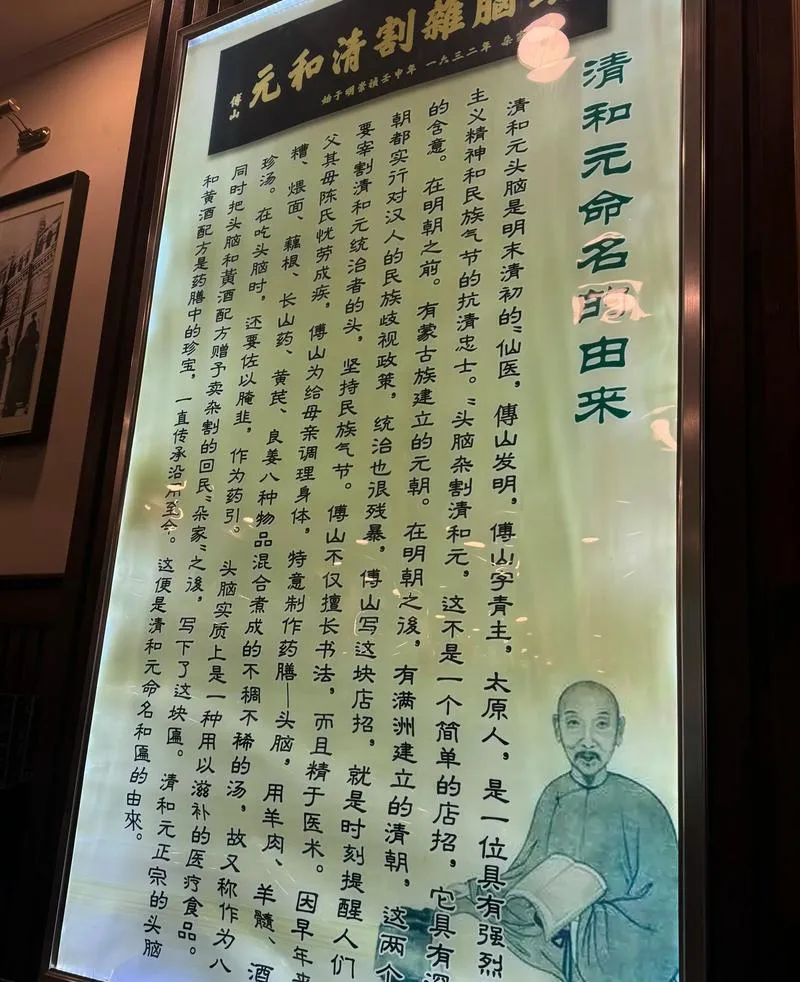 腦雜割清和元
傅山
始于明崇禎壬申年 一六三二年
清和元命名的由来
清和元头脑是明末清初的“仙医，傅山发明，傅山字青主，太原人，是一位具有强烈
主义精神和民族气节的抗清忠士。“头脑杂割清和元，这不是一个简单的店招，它具有深
的含意。在明朝之前。有蒙古族建立的元朝。在明朝之後，有满洲建立的清朝，这两个
朝都实行对汉人的民族歧视政策，统治也很残暴，傅山写这块店招，就是时刻提醒人们
要宰割清和元统治者的头，坚持民族气节。傅山不仅擅长书法，而且精于医术。因早年
父其母陈氏忧劳成疾，傅山为给母亲调理身体，特意制作药膳—头脑，用羊肉、羊髓、酒
糟、煨面、藕根、长山药、黄芪、良姜八种物品混合煮成的不稠不稀的汤，故又称作为八
珍汤。在吃头脑时，还要佐以腌韭，作为药引。头脑实质上是一种用以滋补的医疗食品。
同时把头脑和黄酒配方赠予卖杂割的回民“朵家”之後，写下了这块匾。清和元正宗的头脑
和黄酒配方是药膳中的珍宝，一直传承沿用至今。这便是清和元命名和匾的由來。